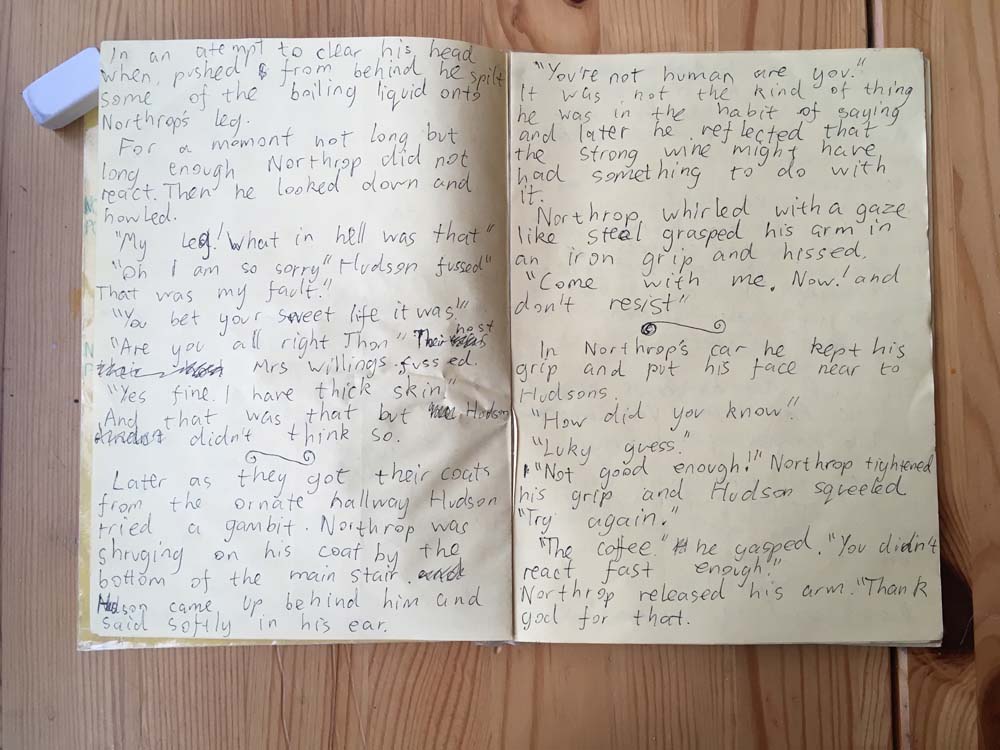 In an atempt to clear his head
when, pushed from behind he spilt
some of the boiling liquid onto
Northrop's leg.
For a momont not long but
long enough Northrop did not
react. Then he looked down and
howled.
"My Leg! What in hell was that"
"Oh I am so sorry" Hudson fussed"
That was my fault."
"You bet your sweet life it was!"
"Are you all right Jhon" Their host
Mrs Willings fussed.
"Yes fine. I have thick skin,"
And that was that but Hudson
didn't think so.
Later as they got their coats
from the ornate hallway Hudson
tried a gambit. Northrop was
shruging on his coat by the
bottom of the main stair.
Hudson came up behind him and
said softly in his ear.
"You're not human are you."
It was not the kind of thing
he was in the habit of saying
and later he reflected that
the strong wine might have
had something to do with
it.
Northrop whirled with a gaze
like steel grasped his arm in
an iron grip and hissed.
"Come with me. Now! and
don't resist"
In Northrop's car he kept his
grip and put his face near to
Hudsons.
"How did you know"
"Luky guess."
"Not good enough!" Northrop tightened
his grip and Hudson squeeled
"Try again."
"The coffee." he gasped. "You didn't
react fast enough."
Northrop released his arm. "Thank
god for that.